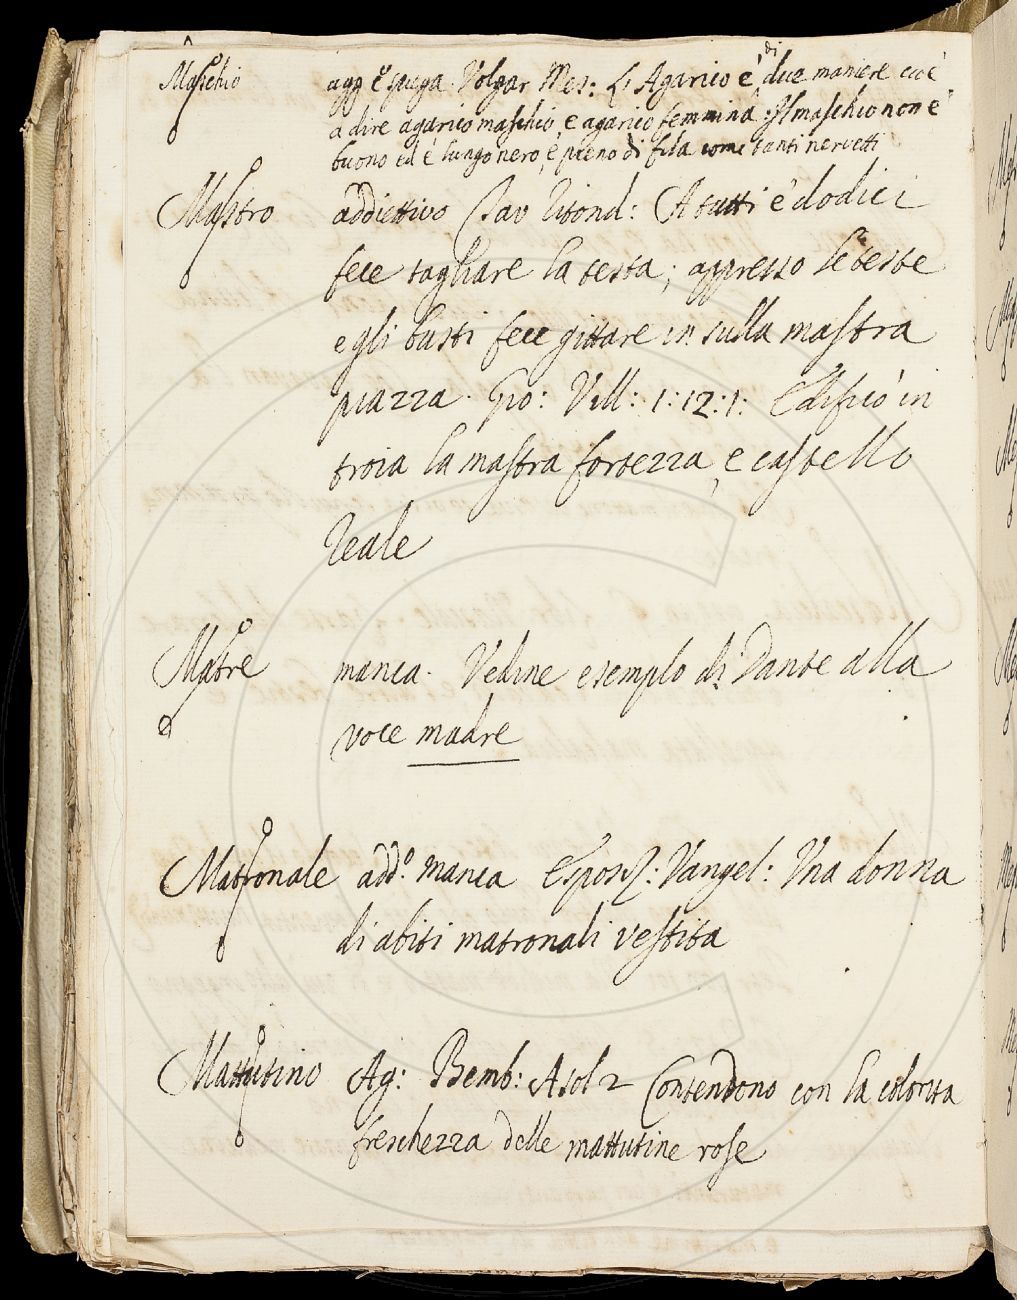 Maschio agg.o e spiega. Volgar. Mes: L'Agarico è di due maniere cioè
a dire agarico maschio, e agarico femmina. Il maschio non è
buono ed è lungo nero, e pieno di fila come tanti nervetti
Mastro addiettivo Tav Ritond: A tutti e dodici
fece tagliare la testa; appresso le teste
e gli busti fece gittare in sulla mastra
piazza. Gio: Vill: 1:12:1: Edificò in
troia la mastra fortezza, e castello
Reale
Matre manca. Vedine esemplo di Dante alla
voce madre
Matronale add.o manca Esposiz: Vangel: Una donna
di abiti matronali vestita
Mattutino Ag: Bemb: Asol 2 Contendono con la colorita
freschezza delle mattutine rose